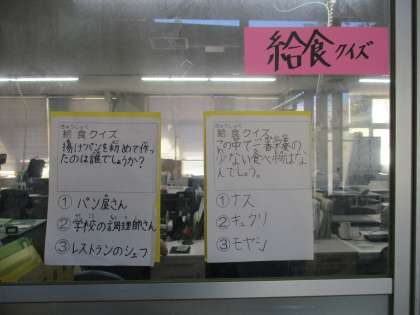 給食クイズ
きゅうしょく
給食クイズ
揚げパンを初めて作っ
たのは誰でしょうか？
① パン屋さん
② 学校の調理師さん
③ レストランのシェフ
きゅうしょく
給食クイズ
この中で一番栄養の
少ない食べ物はな
んでしょう。
① ナス
② キュウリ
③ モヤシ